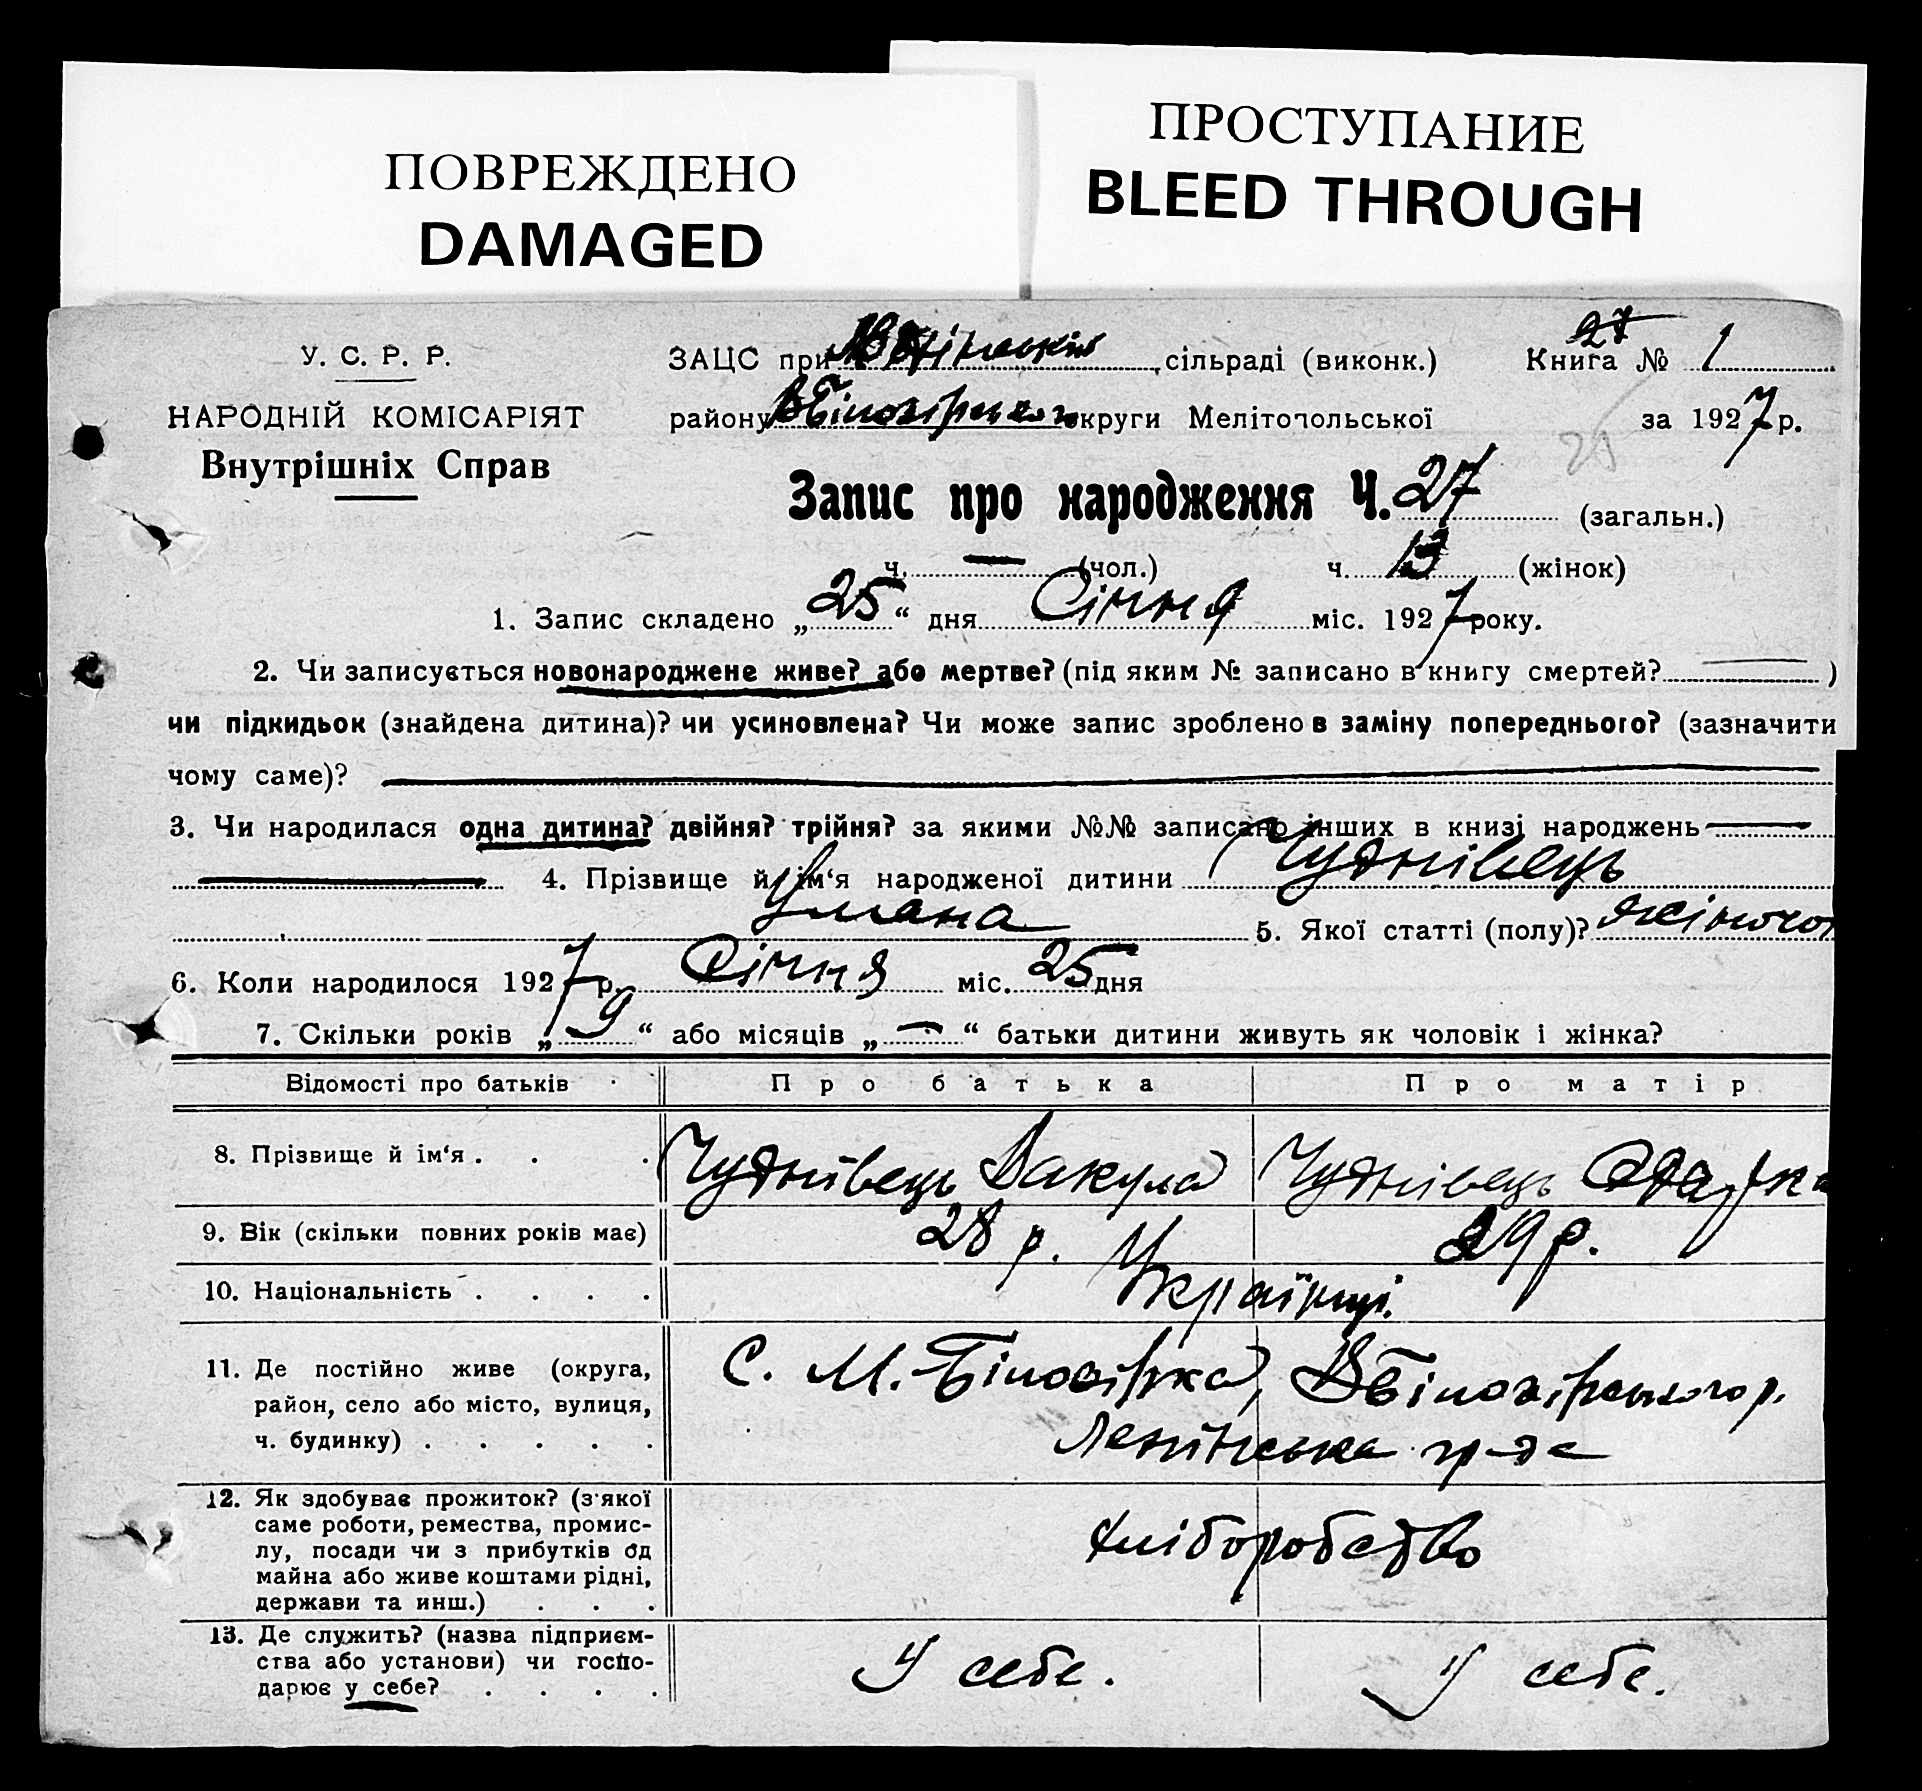 ПОВРЕЖДЕНО
DAMAGED
ПРОСТУПАНИЕ
BLEED THROUGH
У. С. Р. Р.
НАРОДНІЙ КОМІСАРІЯТ
Внутрішніх Справ
ЗАЦС при сільраді (виконк.)
району ВБілозірського округи Мелітопольської
27
Книга № 1
за 1927 р.
25
Запис про народження Ч. 27 (загальн.)
ч. — (чол.) ч. 13 (жінок)
1. Запис складено „25“ дня Січня міс. 1927 року.
2. Чи записується новонароджене живе? або мертве? (під яким № записано в книгу смертей? — )
чи підкидьок (знайдена дитина)? чи усиновлена? Чи може запис зроблено в заміну попереднього? (зазначити
чому саме)? —
3. Чи народилася одна дитина? двійня? трійня? за якими №№ записано інших в книзі народжень —
— 4. Прізвище й ім‘я народженої дитини Чуднівець
Уляна 5. Якої статті (полу)? жіночої
6. Коли народилося 1927 р. Січня міс. 25 дня
7. Скільки років „9“ або місяців „—“ батьки дитини живуть як чоловік і жінка?
Відомості про батьків Про батька Про матір
8. Прізвище й ім‘я . . . Чуднівець Вакула Чуднівець Одарка
9. Вік (скільки повних років має) 28 р. 29 р.
10. Національність . . . . Українці.
11. Де постійно живе (округа, С. М. Білозірка, ВБілозірського р.
район, село або місто, вулиця, Ленінська гр-да
ч. будинку) . . . . .
12. Як здобуває прожиток? (з якої
саме роботи, ремества, промис- хліборобство
лу, посади чи з прибутків од
майна або живе коштами рідні,
держави та инш.) . . .
13. Де служить? (назва підприєм-
ства або установи) чи госпо- У себе. У себе.
дарює у себе? . . . .